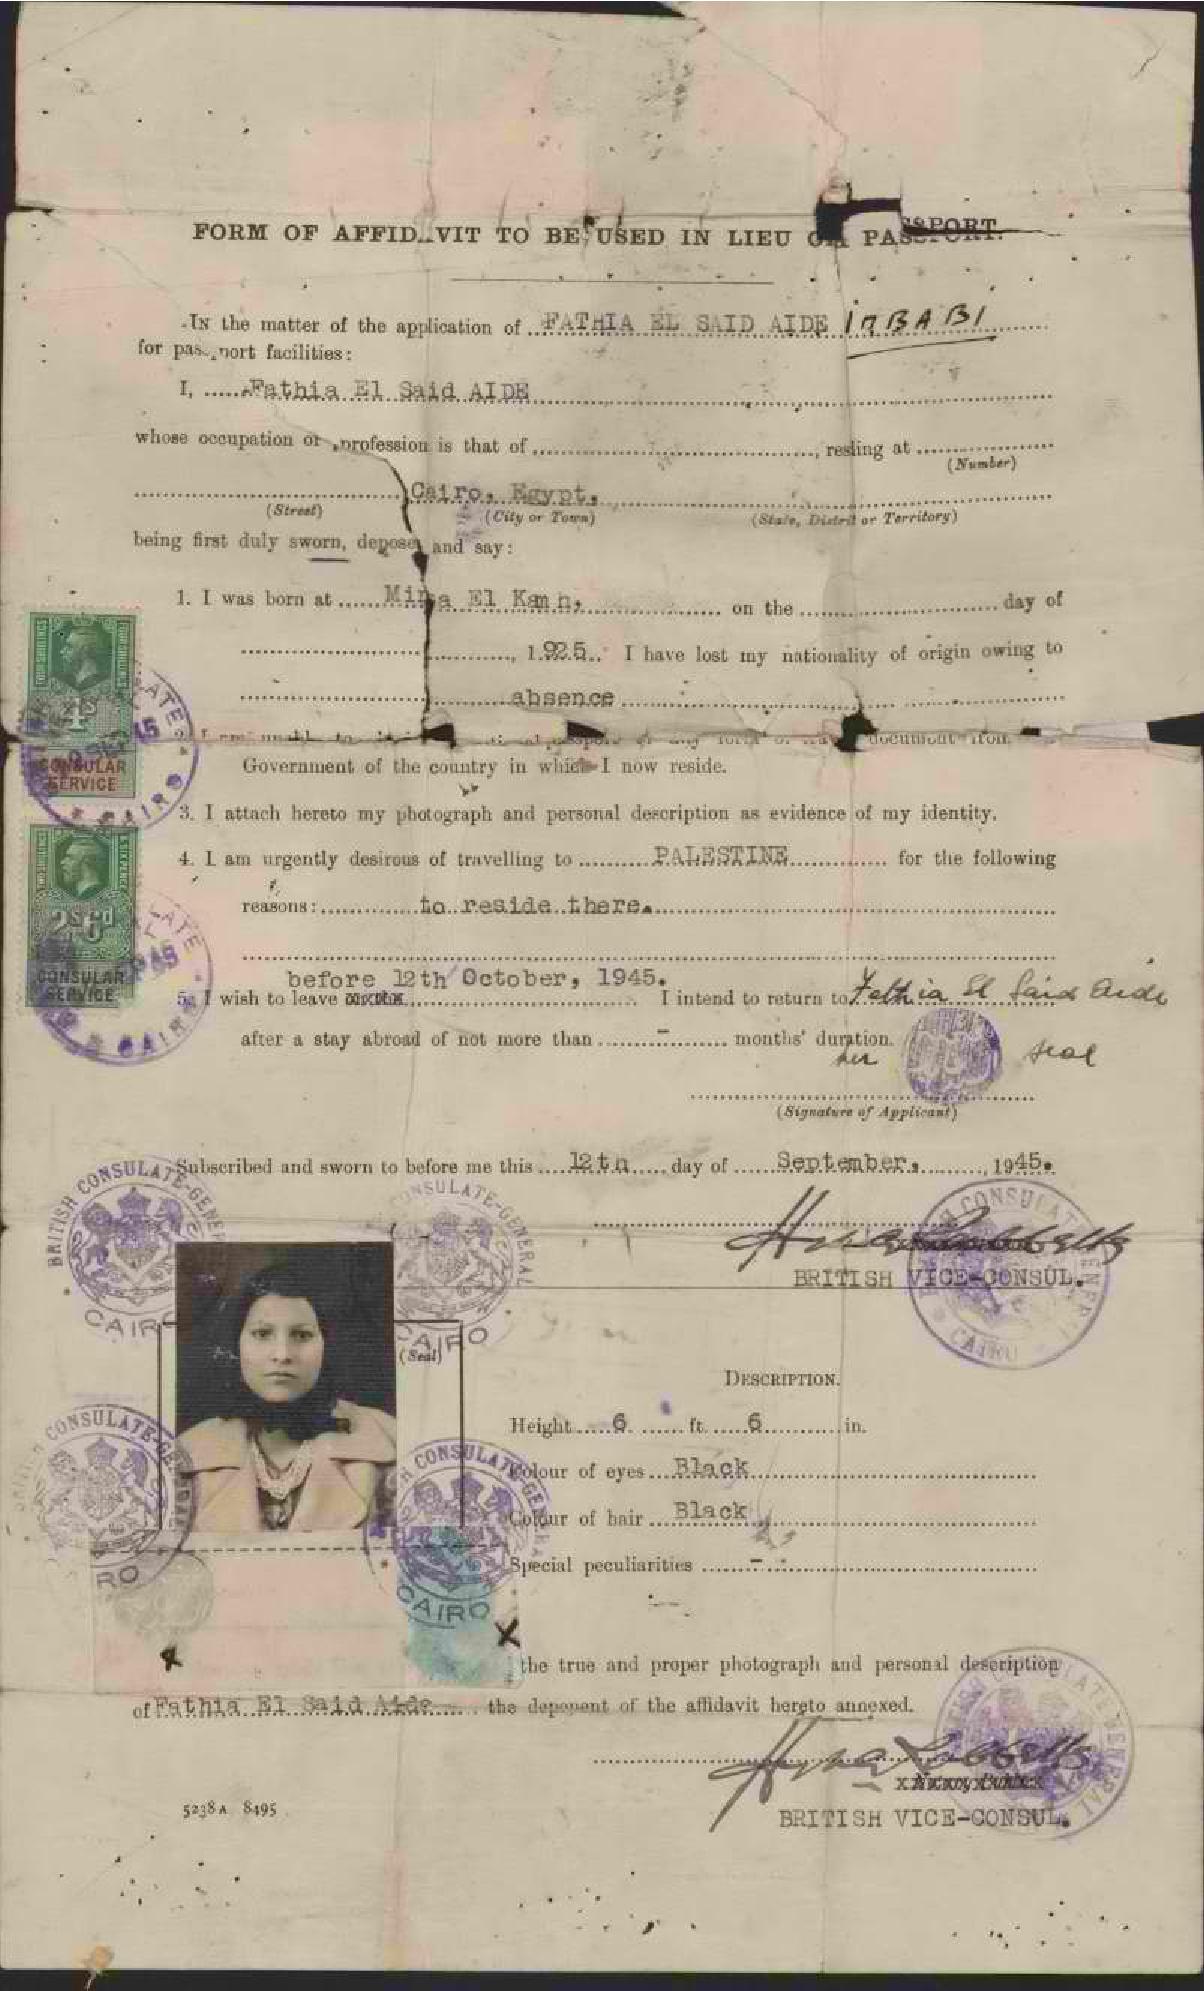 FORM OF AFFIDAVIT TO BE USED IN LIEU OF PASSPORT.
In the matter of the application of FATHIA EL SAID AIDE
for passport facilities:
I, Fathia El Said AIDE
whose occupation or profession is that of , resling at
(Number)
Cairo, Egypt,
(Street) (City or Town) (State, District or Territory)
being first duly sworn, depose and say:
1. I was born at Mina El Kamh, on the day of
, 1925. I have lost my nationality of origin owing to
absence
document from
Government of the country in which I now reside.
3. I attach hereto my photograph and personal description as evidence of my identity.
4. I am urgently desirous of travelling to PALESTINE for the following
reasons: to reside there.
before 12th October, 1945.
5. I wish to leave I intend to return to Fathia El Said Aide
after a stay abroad of not more than - months' duration.
her seal
(Signature of Applicant)
Subscribed and sworn to before me this 12th day of September, 1945.
BRITISH VICE-CONSUL.
(Seal)
DESCRIPTION.
Height 6 ft. 6 in.
Colour of eyes Black
Colour of hair Black
Special peculiarities -
the true and proper photograph and personal description
of Fathia El Said Aide the deponent of the affidavit hereto annexed.
BRITISH VICE-CONSUL.
5238A 8495
4s
CONSULAR
SERVICE
2s6d
CONSULAR
SERVICE
BRITISH CONSULATE-GENERAL
CAIRO
CONSULATE-GENERAL
CAIRO
CONSULATE-GENERAL
CONSULATE-GENERAL
CAIRO